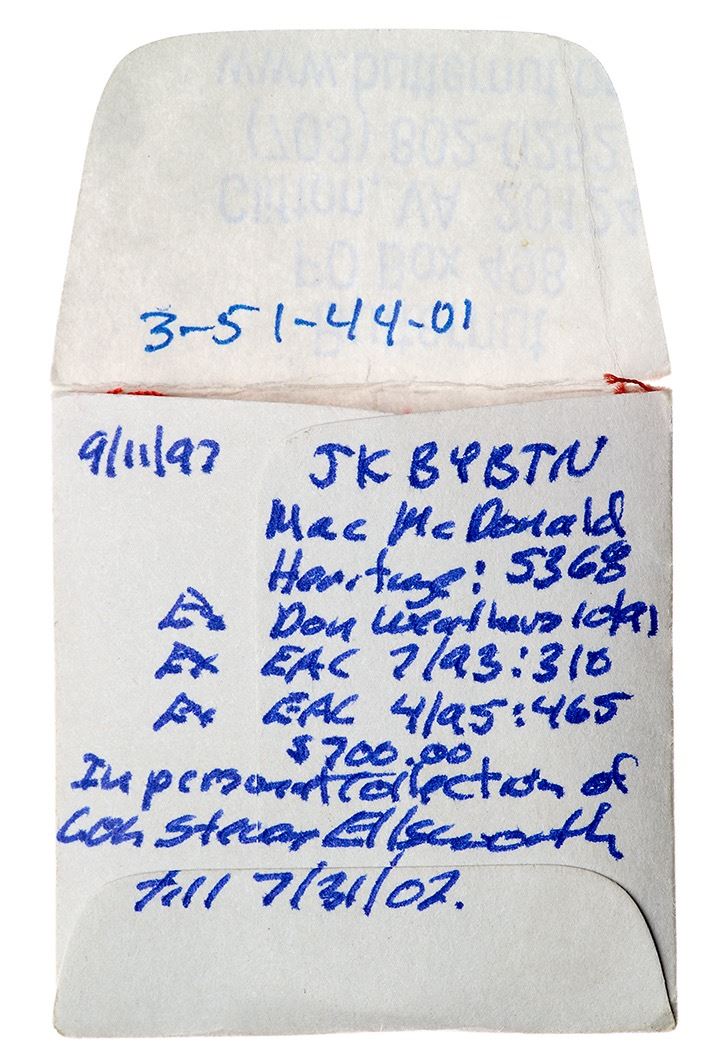 Butternut
PO Box 498
Clifton, VA 20124
(703) 802-0252
www.butternut.
3-51-44-01
9/11/97 JK
Mac McDonald
Heritage: 5368
Ex Don
Ex EAC 7/93:310
Ex EAC 4/95:465
$700.00
In personal collection of
Col Steven Ellsworth
till 7/31/02.